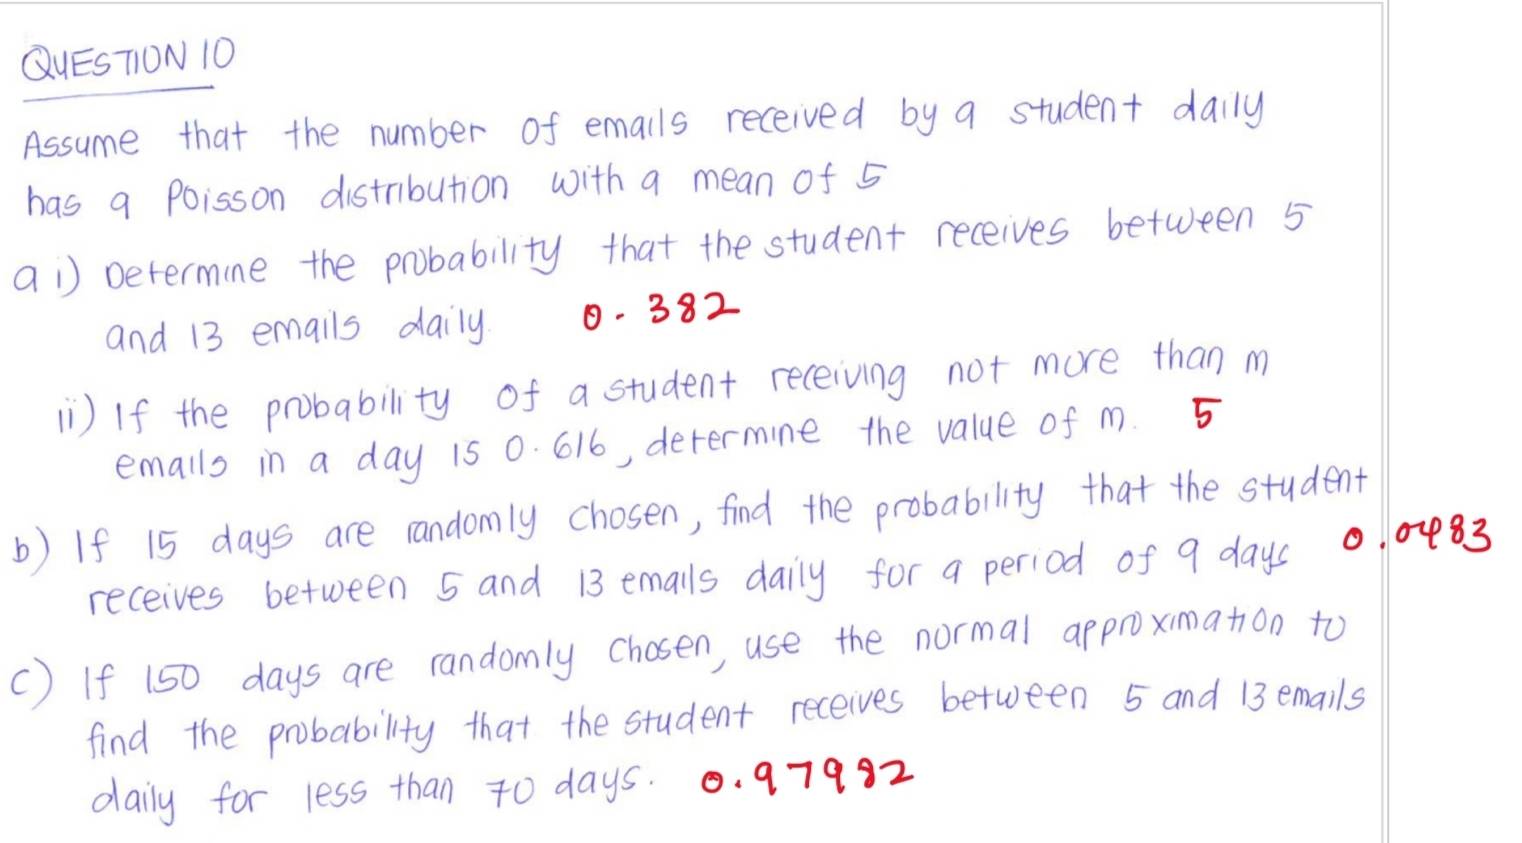 QUESTION 10
Assume that the number of emails received by a student daily
has a Poisson distribution with a mean of 5
a i) Determine the probability that the student receives between 5
and 13 emails daily. 0.382
ii) If the probability of a student receiving not more than m
emails in a day is 0.616, determine the value of m. 5
b) If 15 days are randomly chosen, find the probability that the student
receives between 5 and 13 emails daily for a period of 9 days 0.0483
c) If 150 days are randomly chosen, use the normal approximation to
find the probability that the student receives between 5 and 13 emails
daily for less than 70 days. 0.97982